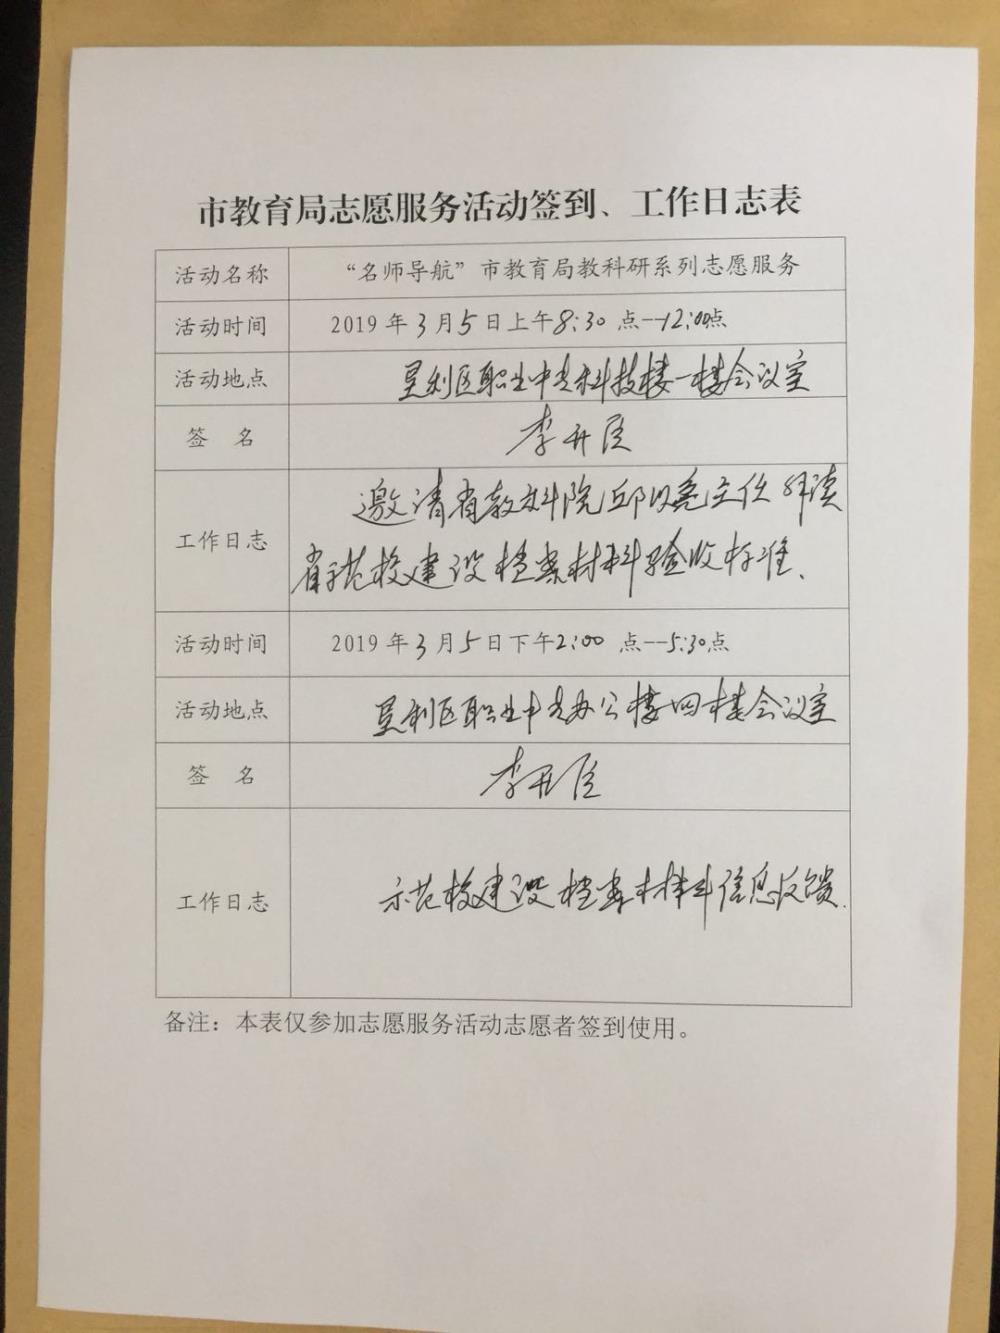 市教育局志愿服务活动签到、工作日志表
活动名称 “名师导航”市教育局教科研系列志愿服务
活动时间 2019年3月5日上午8:30点—12:00点
活动地点 垦利区职业中专科技楼一楼会议室
签 名 李开臣
工作日志 邀请省教科院邱以亮主任解读
省示范校建设档案材料验收标准、
活动时间 2019年3月5日下午2:00点—5:30点
活动地点 垦利区职业中专办公楼四楼会议室
签 名 李开臣
工作日志 示范校建设档案材料信息反馈.
备注：本表仅参加志愿服务活动志愿者签到使用。